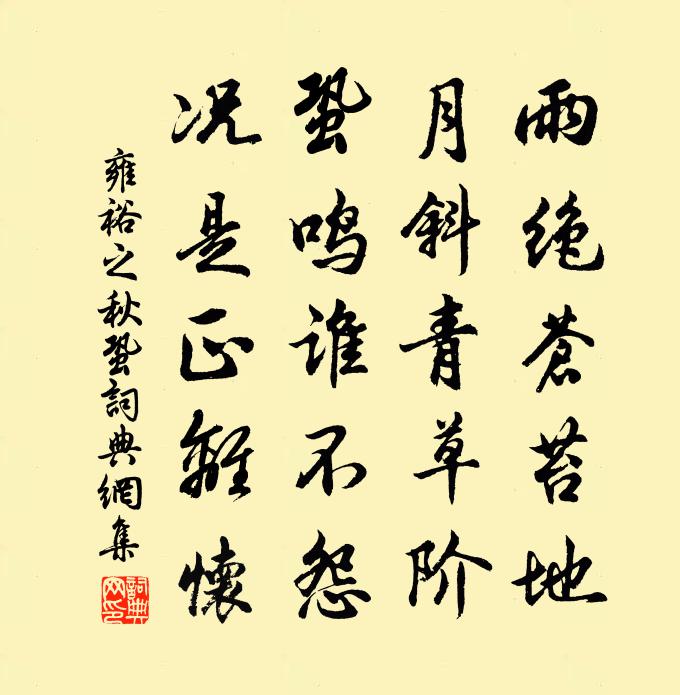 雨绝苍苔地
月斜青草阶
蛩鸣谁不怨
况是正離懷
雍裕之秋蛩詞典網集
詞典網印